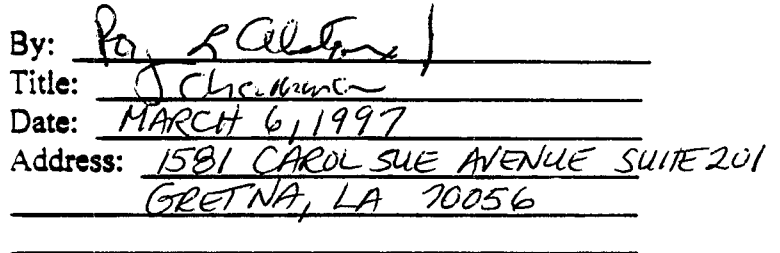 By:
Title: Chairman
Date: MARCH 6, 1997
Address: 1581 CAROL SUE AVENUE SUITE 201
GRETNA, LA 70056